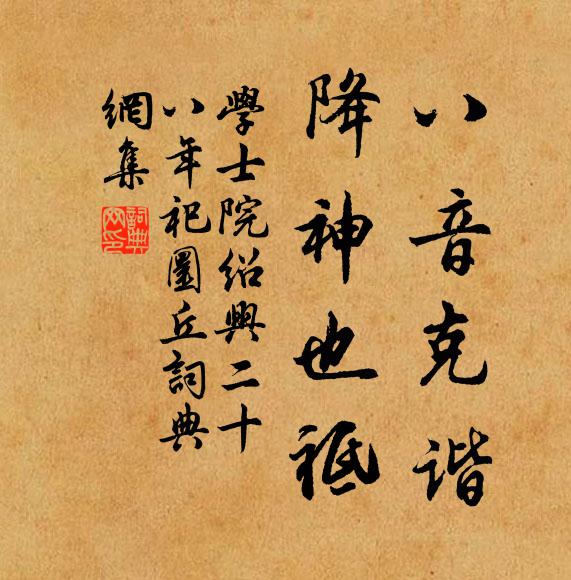 八音克谐
降神也祗
學士院紹興二十
八年祀圜丘詞典
網集
詞典網印